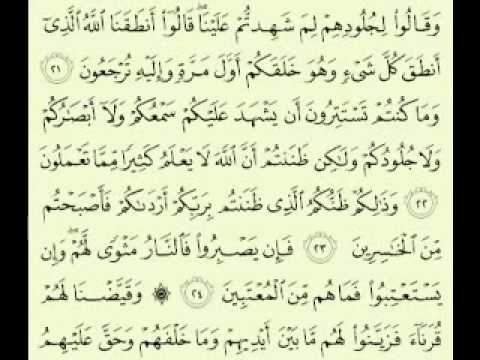 وَقَالُوا۟ لِجُلُودِهِمْ لِمَ شَهِدتُّمْ عَلَيْنَا ۖ قَالُوٓا۟ أَنطَقَنَا ٱللَّهُ ٱلَّذِىٓ
أَنطَقَ كُلَّ شَىْءٍ وَهُوَ خَلَقَكُمْ أَوَّلَ مَرَّةٍ وَإِلَيْهِ تُرْجَعُونَ ٢١
وَمَا كُنتُمْ تَسْتَتِرُونَ أَن يَشْهَدَ عَلَيْكُمْ سَمْعُكُمْ وَلَآ أَبْصَـٰرُكُمْ
وَلَا جُلُودُكُمْ وَلَـٰكِن ظَنَنتُمْ أَنَّ ٱللَّهَ لَا يَعْلَمُ كَثِيرًا مِّمَّا تَعْمَلُونَ
٢٢ وَذَٰلِكُمْ ظَنُّكُمُ ٱلَّذِى ظَنَنتُم بِرَبِّكُمْ أَرْدَىٰكُمْ فَأَصْبَحْتُم
مِّنَ ٱلْخَـٰسِرِينَ ٢٣ فَإِن يَصْبِرُوا۟ فَٱلنَّارُ مَثْوًى لَّهُمْ ۖ وَإِن
يَسْتَعْتِبُوا۟ فَمَا هُم مِّنَ ٱلْمُعْتَبِينَ ٢٤ ۞ وَقَيَّضْنَا لَهُمْ
قُرَنَآءَ فَزَيَّنُوا۟ لَهُم مَّا بَيْنَ أَيْدِيهِمْ وَمَا خَلْفَهُمْ وَحَقَّ عَلَيْهِمُ